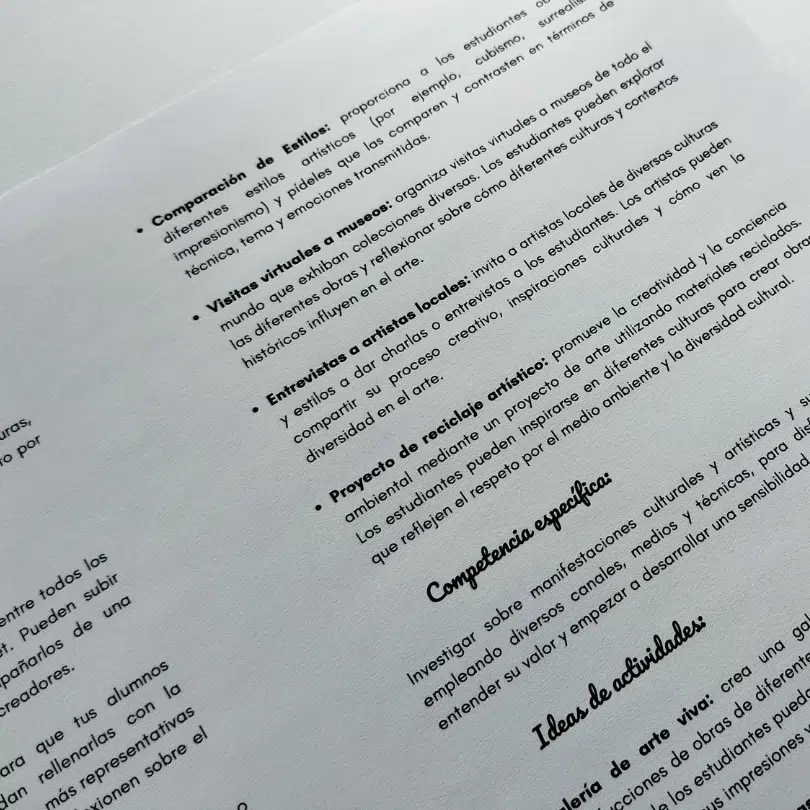 uras,
ro por
entre todos los
et. Pueden subir
pañarlos de una
creadores.
ara que tus alumnos
dan rellenarlas con la
más representativas
exionen sobre el
• Comparación de Estilos: proporciona a los estudiantes
diferentes estilos artísticos (por ejemplo, cubismo,
impresionismo) y pídeles que las comparen y contrasten en términos de
técnica, tema y emociones transmitidas.
• Visitas virtuales a museos: organiza visitas virtuales a museos de todo el
mundo que exhiban colecciones diversas. Los estudiantes pueden explorar
las diferentes obras y reflexionar sobre cómo diferentes culturas y contextos
históricos influyen en el arte.
• Entrevistas a artistas locales: invita a artistas locales de diversas culturas
y estilos a dar charlas o entrevistas a los estudiantes. Los artistas pueden
compartir su proceso creativo, inspiraciones culturales y cómo ven la
diversidad en el arte.
• Proyecto de reciclaje artístico: promueve la creatividad y la conciencia
ambiental mediante un proyecto de arte utilizando materiales reciclados.
Los estudiantes pueden inspirarse en diferentes culturas para crear obras
que reflejen el respeto por el medio ambiente y la diversidad cultural.
Competencia específica:
Investigar sobre manifestaciones culturales y artísticas y
empleando diversos canales, medios y técnicas, para
entender su valor y empezar a desarrollar una sensibilidad
Ideas de actividades:
lería de arte viva: crea una
cciones de obras de
los estudiantes
impresiones y